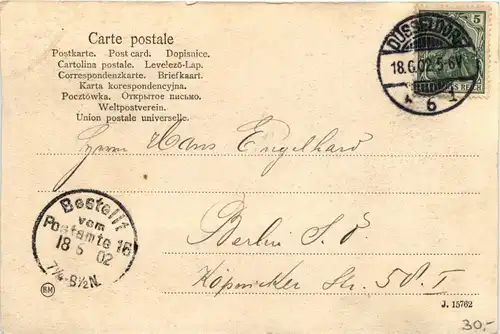 Carte postale
Postkarte. Post card. Dopisnice.
Cartolina postale. Levelező-Lap.
Correspondenzkarte. Briefkaart.
Karta korespondencyjna.
Pocztówka. Открытое письмо.
Weltpostverein.
Union postale universelle.
DÜSSELDORF
18.6.02.5-6V.
5
Herrn Hans Engelhard
Bestellt
vom
Postamte 16
18 6 02
7¼-8½N.
Berlin S.O
Köpnicker Str. 50. I
RM
J. 15762
30.-